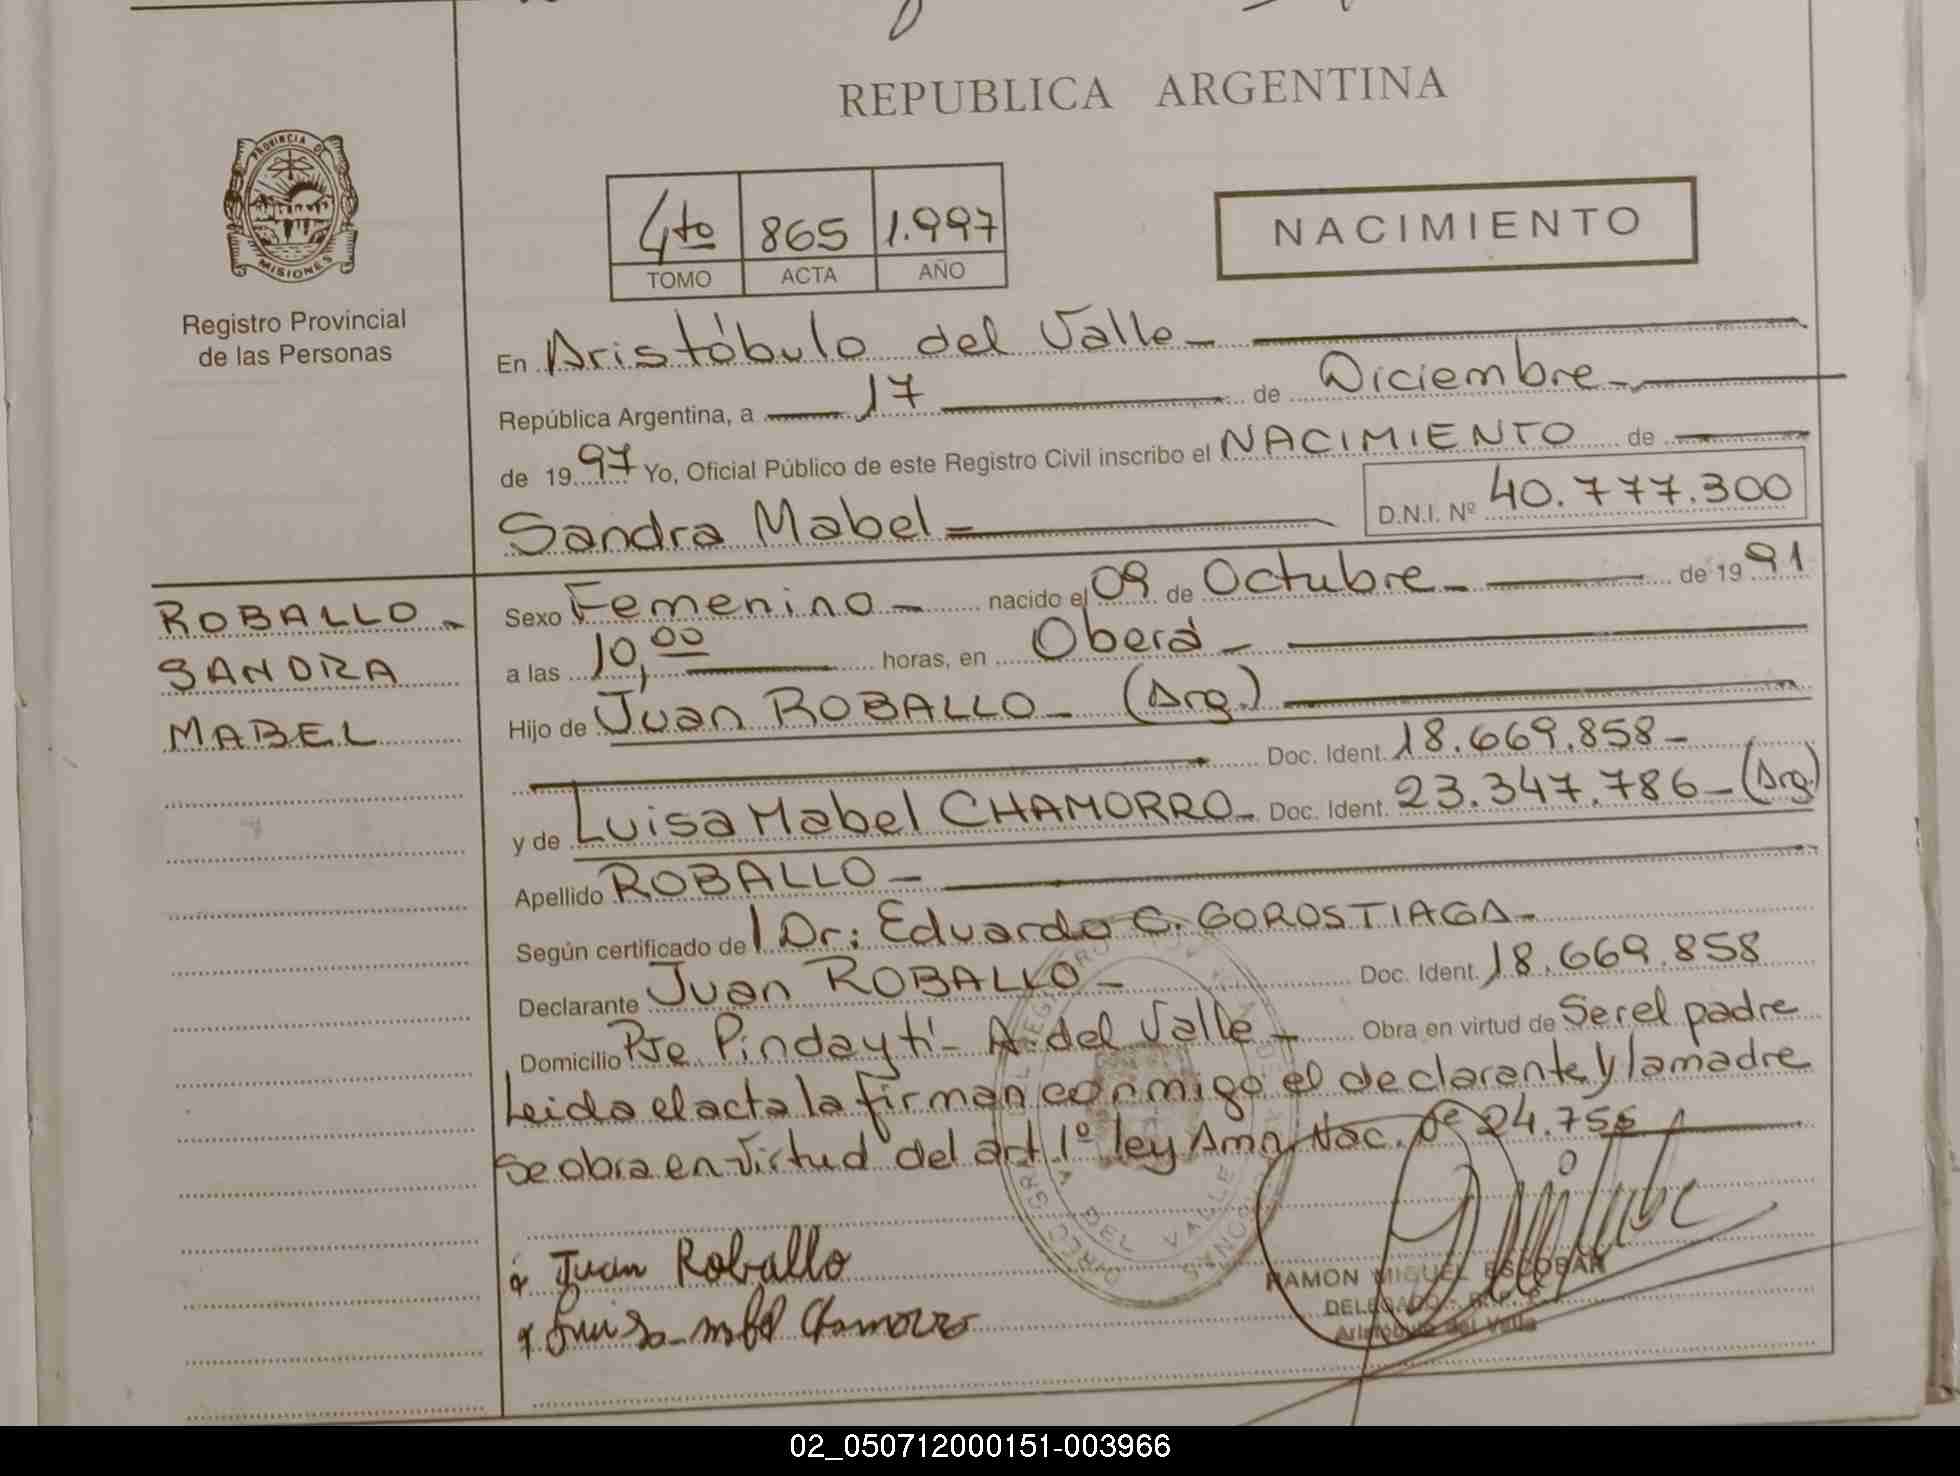 REPUBLICA ARGENTINA
PROVINCIA DE
MISIONES
Registro Provincial
de las Personas
4to 865 1.997
TOMO ACTA AÑO
NACIMIENTO
En Aristóbulo del Valle
República Argentina, a 17 de Diciembre
de 1997 Yo, Oficial Público de este Registro Civil inscribo el NACIMIENTO de
Sandra Mabel D.N.I. Nº 40.777.300
ROBALLO
SANDRA
MABEL
Sexo Femenino nacido el 09 de Octubre de 1991
a las 10,00 horas, en Oberá
Hijo de Juan ROBALLO (Arg.)
Doc. Ident. 18.669.858
y de Luisa Mabel CHAMORRO Doc. Ident. 23.347.786 (Arg)
Apellido ROBALLO
Según certificado del Dr: Eduardo C. GOROSTIAGA
Declarante Juan ROBALLO Doc. Ident. 18.669.858
Domicilio Pje Pindaytí - A. del Valle Obra en virtud de Ser el padre
Leida el acta la firman conmigo el declarante y la madre
Se obra en virtud del art 1º ley Nac. de 24.755
Juan Roballo
Chamorro
RAMON MIGUEL ESCOBAR
DELEGADO
Aristóbulo del Valle
DEL VALLE
02_050712000151-003966